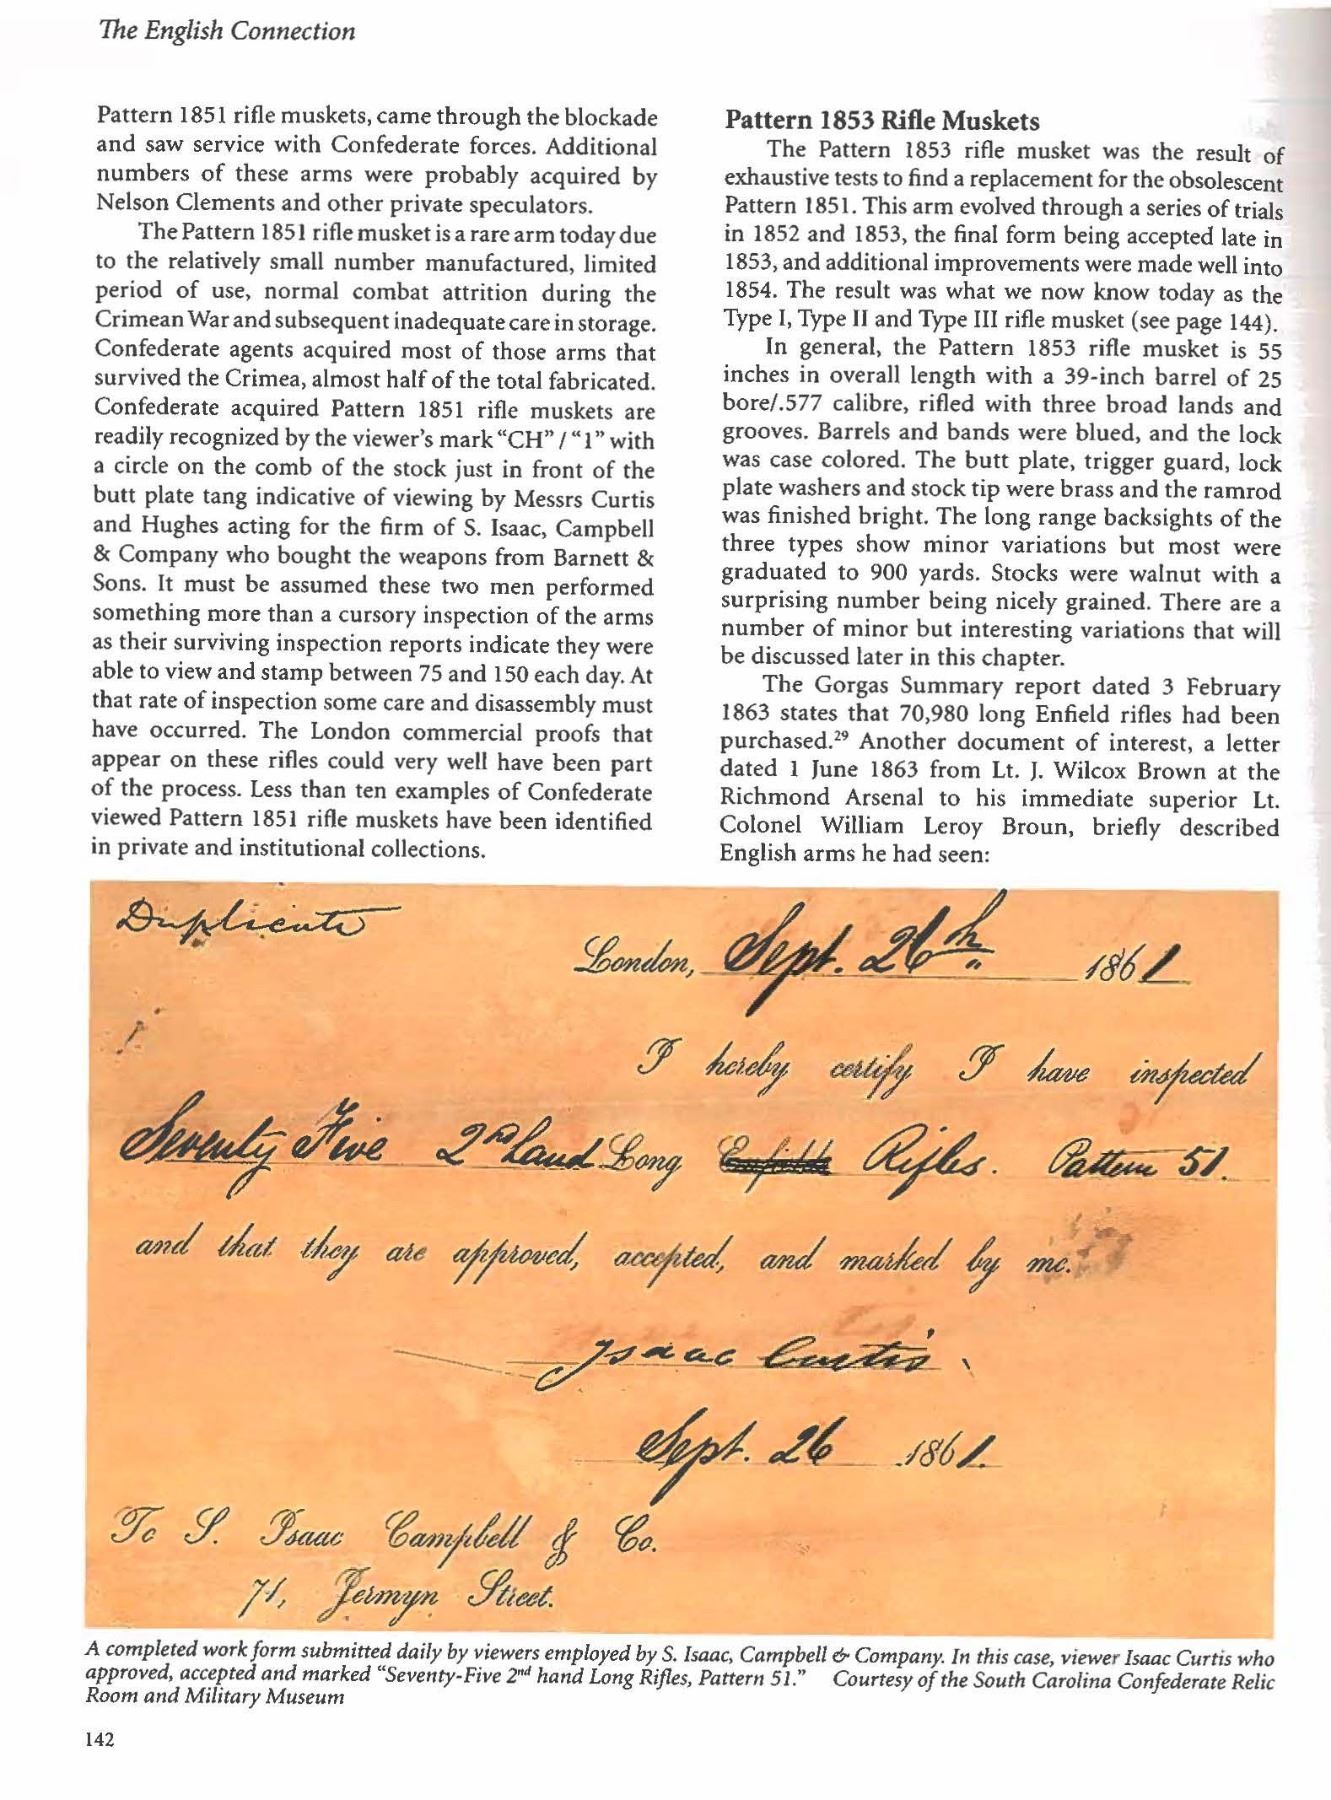 The English Connection
Pattern 1851 rifle muskets, came through the blockade
and saw service with Confederate forces. Additional
numbers of these arms were probably acquired by
Nelson Clements and other private speculators.
The Pattern 1851 rifle musket is a rare arm today due
to the relatively small number manufactured, limited
period of use, normal combat attrition during the
Crimean War and subsequent inadequate care in storage.
Confederate agents acquired most of those arms that
survived the Crimea, almost half of the total fabricated.
Confederate acquired Pattern 1851 rifle muskets are
readily recognized by the viewer's mark "CH" / "1" with
a circle on the comb of the stock just in front of the
butt plate tang indicative of viewing by Messrs Curtis
and Hughes acting for the firm of S. Isaac, Campbell
& Company who bought the weapons from Barnett &
Sons. It must be assumed these two men performed
something more than a cursory inspection of the arms
as their surviving inspection reports indicate they were
able to view and stamp between 75 and 150 each day. At
that rate of inspection some care and disassembly must
have occurred. The London commercial proofs that
appear on these rifles could very well have been part
of the process. Less than ten examples of Confederate
viewed Pattern 1851 rifle muskets have been identified
in private and institutional collections.
Pattern 1853 Rifle Muskets
The Pattern 1853 rifle musket was the result of
exhaustive tests to find a replacement for the obsolescent
Pattern 1851. This arm evolved through a series of trials
in 1852 and 1853, the final form being accepted late in
1853, and additional improvements were made well into
1854. The result was what we now know today as the
Type I, Type II and Type III rifle musket (see page 144).
In general, the Pattern 1853 rifle musket is 55
inches in overall length with a 39-inch barrel of 25
bore/.577 calibre, rifled with three broad lands and
grooves. Barrels and bands were blued, and the lock
was case colored. The butt plate, trigger guard, lock
plate washers and stock tip were brass and the ramrod
was finished bright. The long range backsights of the
three types show minor variations but most were
graduated to 900 yards. Stocks were walnut with a
surprising number being nicely grained. There are a
number of minor but interesting variations that will
be discussed later in this chapter.
The Gorgas Summary report dated 3 February
1863 states that 70,980 long Enfield rifles had been
purchased.²⁹ Another document of interest, a letter
dated 1 June 1863 from Lt. J. Wilcox Brown at the
Richmond Arsenal to his immediate superior Lt.
Colonel William Leroy Broun, briefly described
English arms he had seen:
Duplicate
London, Sept. 26th 1861
I hereby certify I have inspected
Seventy Five 2nd hand Long Enfield Rifles. Pattern 51.
and that they are approved, accepted, and marked by me.
Isaac Curtis
Sept. 26 1861.
To S. Isaac Campbell & Co.
71, Jermyn Street.
A completed work form submitted daily by viewers employed by S. Isaac, Campbell & Company. In this case, viewer Isaac Curtis who
approved, accepted and marked "Seventy-Five 2nd hand Long Rifles, Pattern 51." Courtesy of the South Carolina Confederate Relic
Room and Military Museum
142